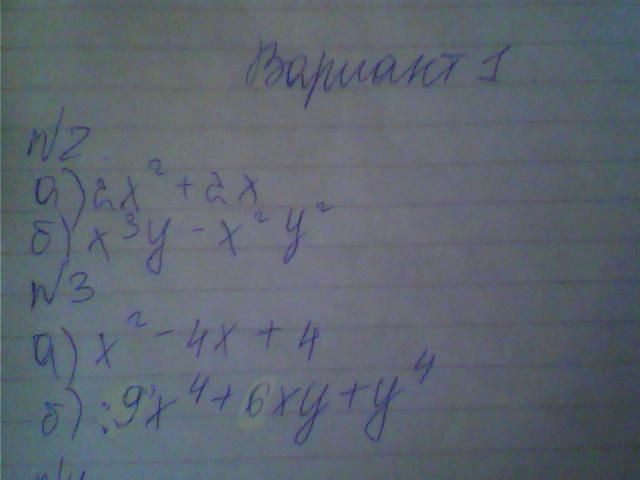 Вариант 1
№2
а) 2x² + 2x
б) x³y - x²y²
№3
а) x² - 4x + 4
б) 9x⁴ + 6xy + y⁴